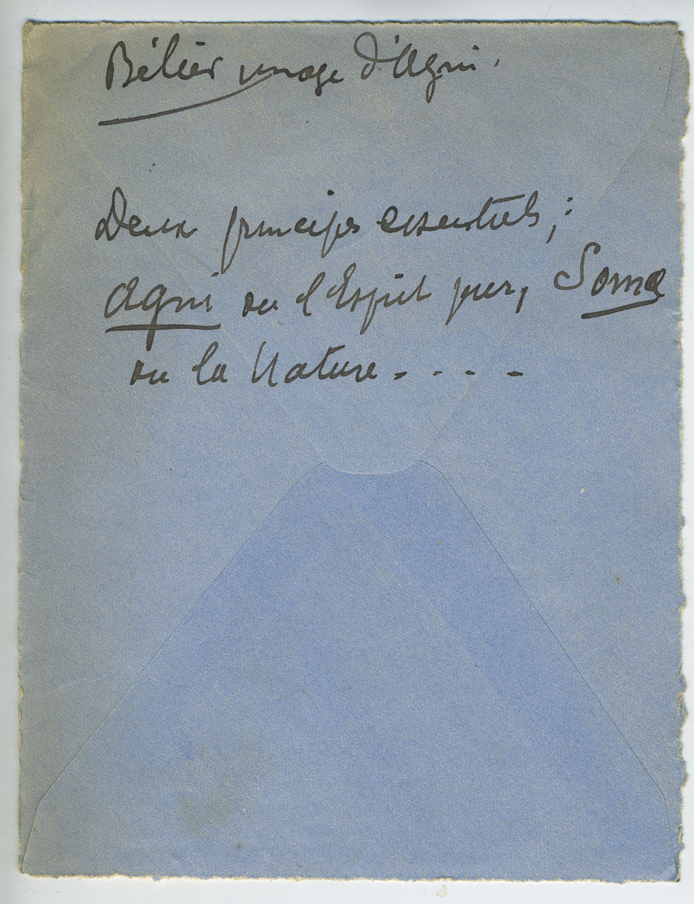 Bélier image d'Agni.
Deux principes essentiels ;
Agni ou l'Esprit pur, Soma
ou la Nature - - - -